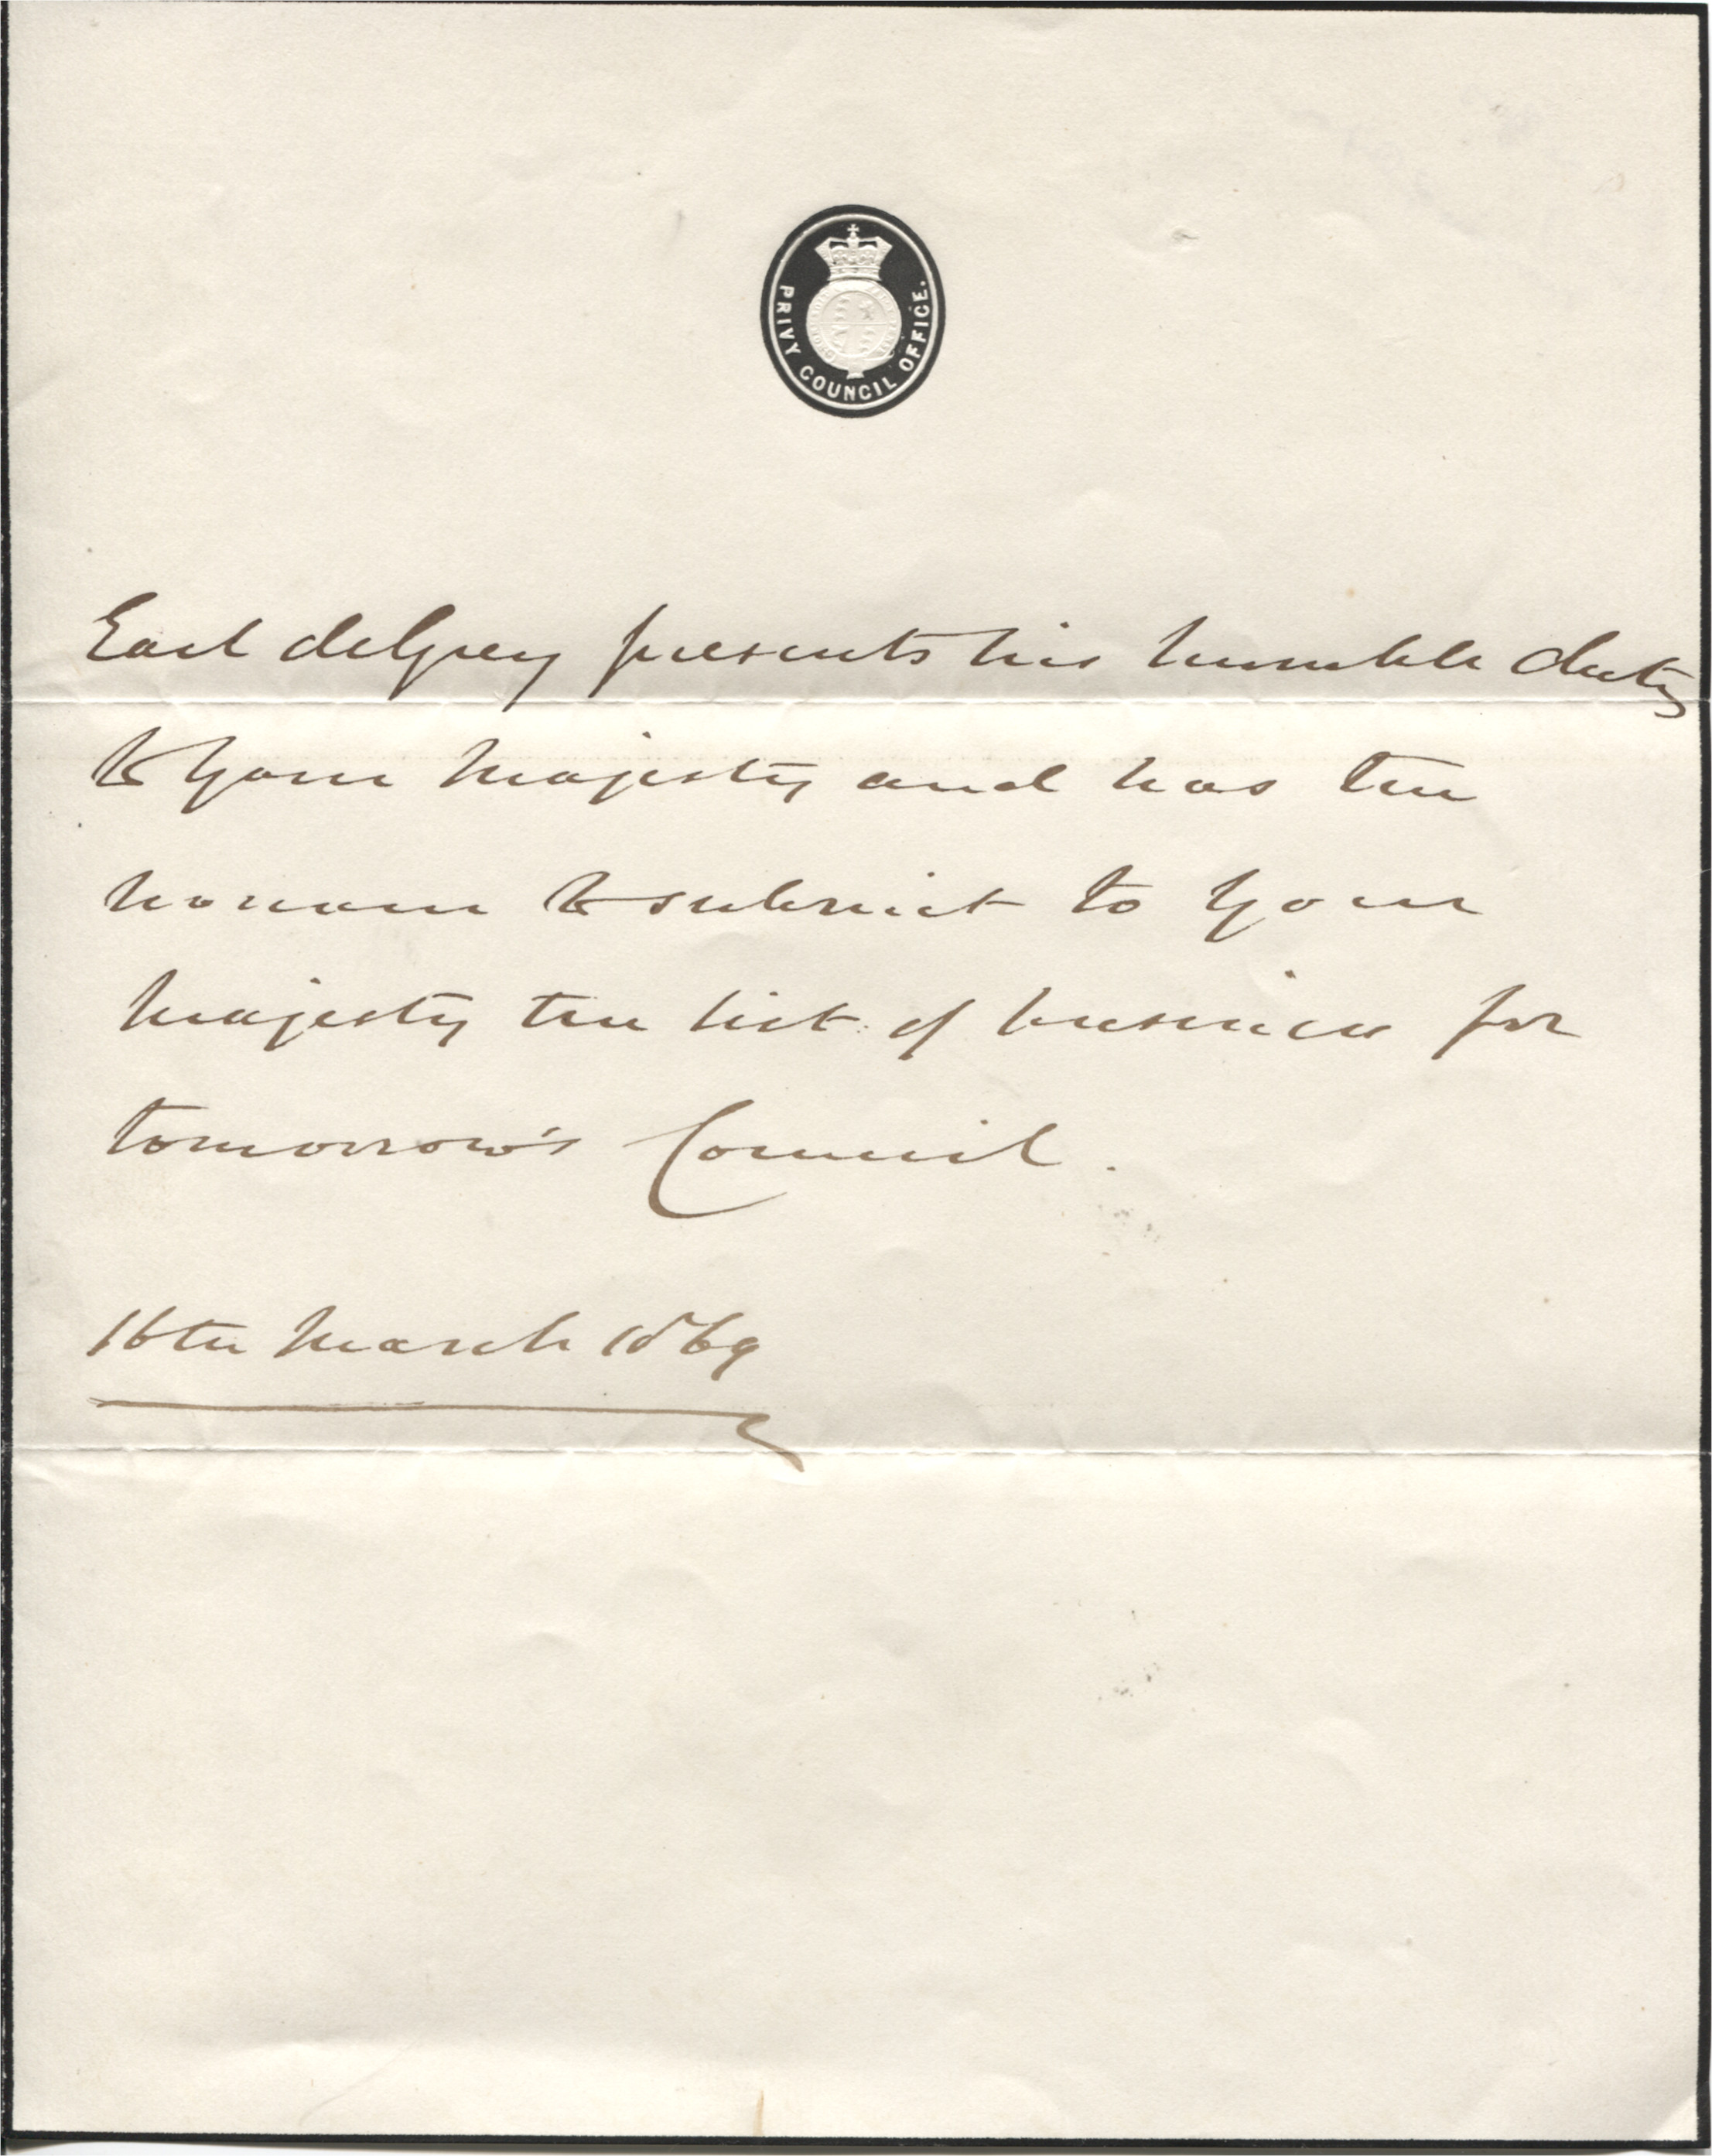 PRIVY COUNCIL OFFICE.
Earl de Grey presents his humble duty
to Your Majesty and has the
honour to submit to Your
Majesty the list of business for
tomorrow's Council.
16th March 1869